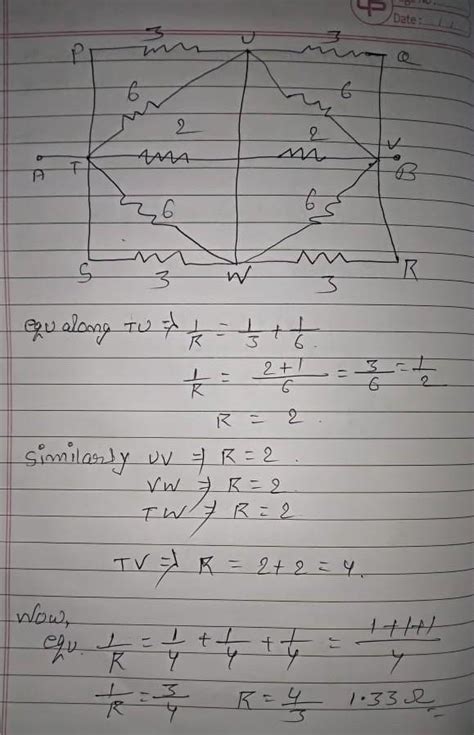 Date:
P 3 U 3 Q
6 6
2 2 V
A T B
6 6
S 3 W 3 R
equ along TU ⇒ 1/R = 1/3 + 1/6
1/R = 2+1/6 = 3/6 = 1/2
R = 2.
Similarly UV ⇒ R = 2.
VW ⇒ R = 2
TW ⇒ R = 2
TV ⇒ R = 2 + 2 = 4.
Now,
equ. 1/R = 1/4 + 1/4 + 1/4 = 1+1+1/4
1/R = 3/4 R = 4/3 1.33 Ω